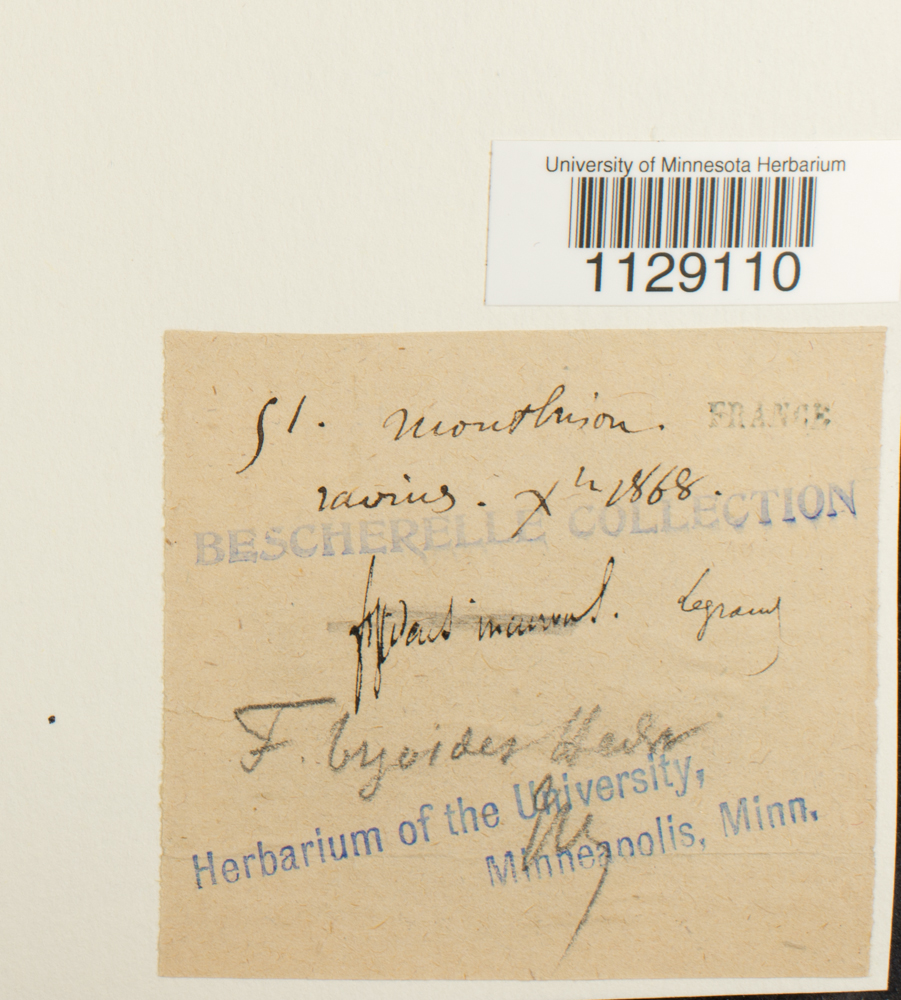 University of Minnesota Herbarium
1129110
51. Montbrison. FRANCE
ravins. Xbre 1868.
BESCHERELLE COLLECTION
Legrand
F. bryoides Hedw
Herbarium of the University,
Minneapolis, Minn.